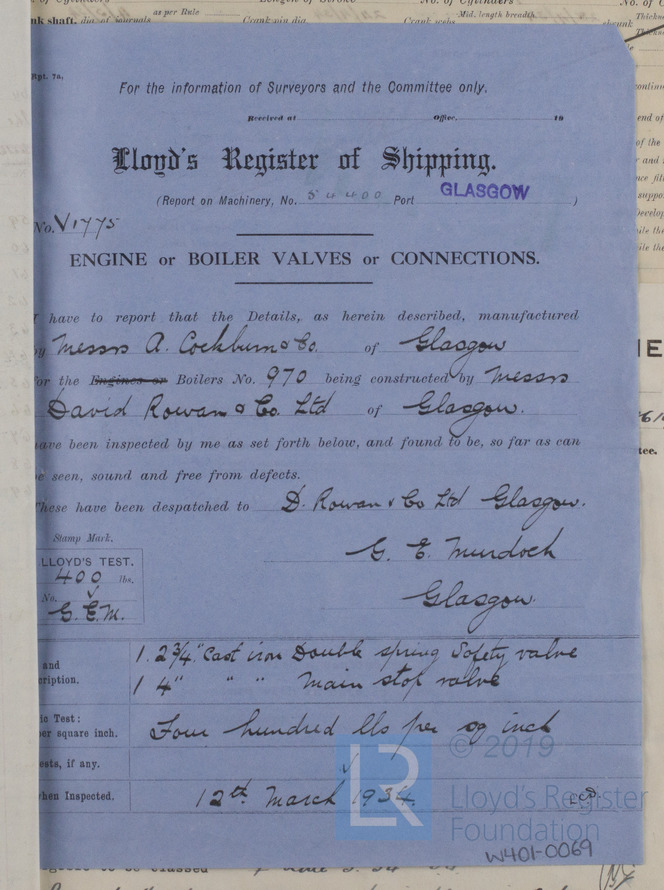 as per Rule
Mid. length breadth
nk shaft, dia. of journals Crank pin dia. Crank webs shrunk Thickne
Rpt. 7a.
For the information of Surveyors and the Committee only.
Received at Office, 19
Lloyd's Register of Shipping.
(Report on Machinery, No. 54400 Port GLASGOW )
No. V1775
ENGINE or BOILER VALVES or CONNECTIONS.
I have to report that the Details, as herein described, manufactured
by Messrs A. Cockburn & Co. of Glasgow
for the Engines or Boilers No. 970 being constructed by Messrs
David Rowan & Co. Ltd of Glasgow.
have been inspected by me as set forth below, and found to be, so far as can
be seen, sound and free from defects.
These have been despatched to D. Rowan & Co Ltd Glasgow.
Stamp Mark. G. E. Murdoch
LLOYD'S TEST.
400 lbs.
No. Glasgow.
G.E.M.
1. 2 3/4" Cast iron Double spring Safety valve
and
cription. 1 4" " " Main stop valve
ic Test:
per square inch. Four hundred lbs per sq inch
ests, if any.
when Inspected. 12th March 1934.
© 2019
LR
Lloyd's Register
Foundation
W401-0069